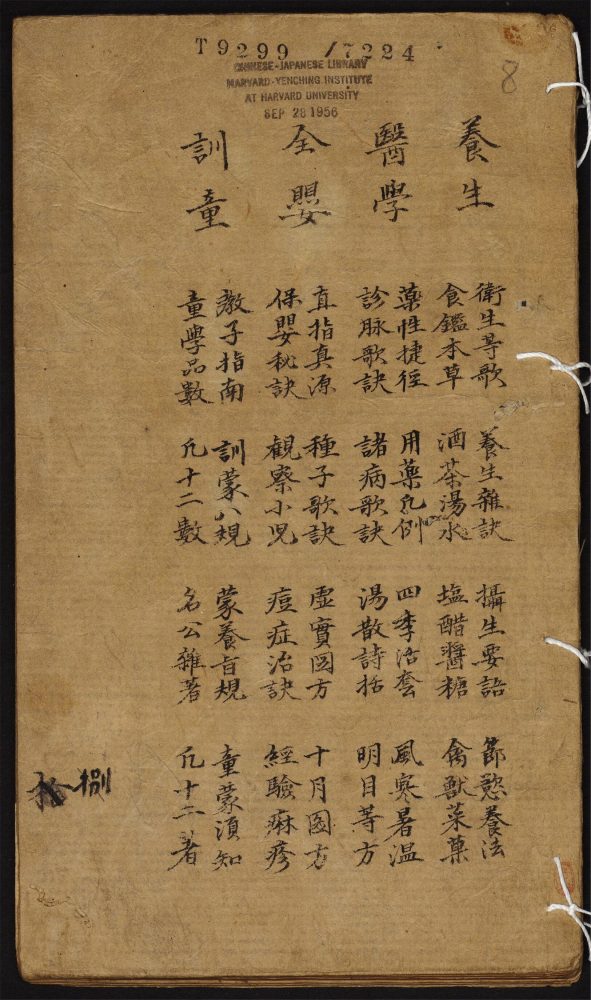 T9299 /7224
CHINESE-JAPANESE LIBRARY
HARVARD-YENCHING INSTITUTE
AT HARVARD UNIVERSITY
SEP 28 1956
8
養生
衛生等歌 養生雜訣 攝生要語 節慾養法
食鑑本草 酒茶湯水 塩醋醬糖 禽獸菜菓
醫學
藥性捷徑 用藥凡例 四季治套 風寒暑温
診脉歌訣 諸病歌訣 湯散詩括 明目等方
全嬰
直指真源 種子歌訣 虛實図方 十月図方
保嬰秘訣 観察小児 痘症治訣 經驗痳疹
訓童
教子指南 訓蒙八規 蒙養旨規 童蒙須知
童學品數 凡十二數 名公雜著 凡十二著
捌